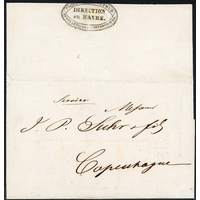 DIRECTION
DU HAVRE.
Service
Messieurs
J. P. Suhr & fils
Copenhague